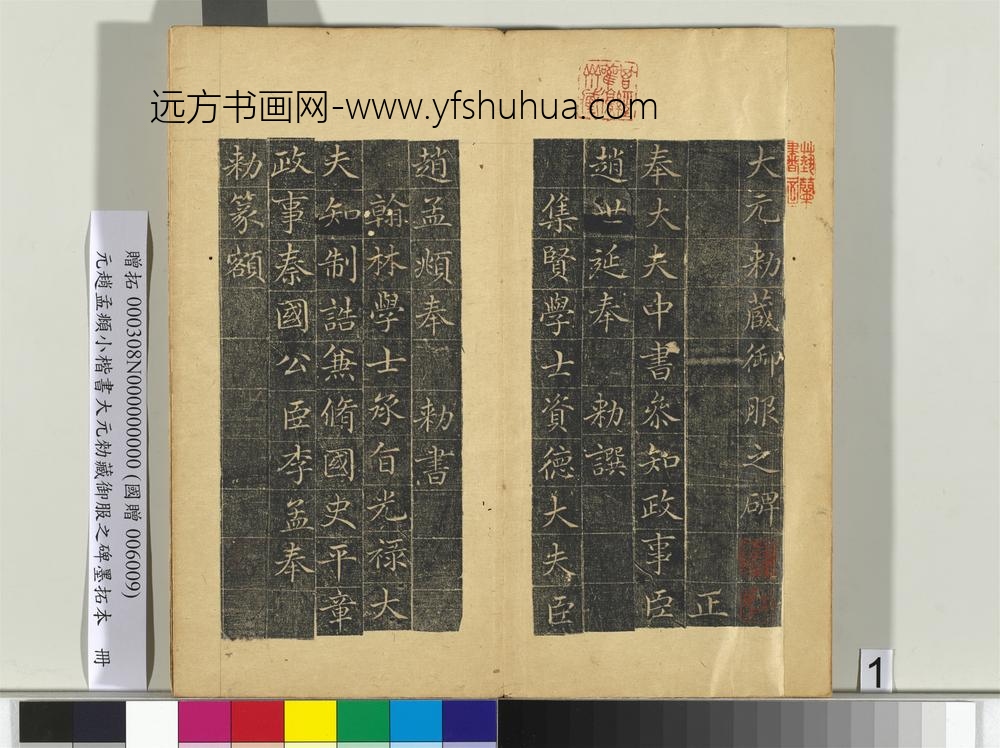 远方书画网-www.yfshuhua.com
大元勅藏御服之碑
正
奉大夫中書叅知政事臣
趙世延奉　勅譔
集賢學士資德大夫臣
趙孟頫奉　勅書
翰林學士承旨光祿大
夫知制誥兼脩國史平章
政事秦國公臣李孟奉
勅篆額
贈拓 000308N000000000 (國贈 006009)
元趙孟頫小楷書大元勅藏御服之碑墨拓本　冊
1